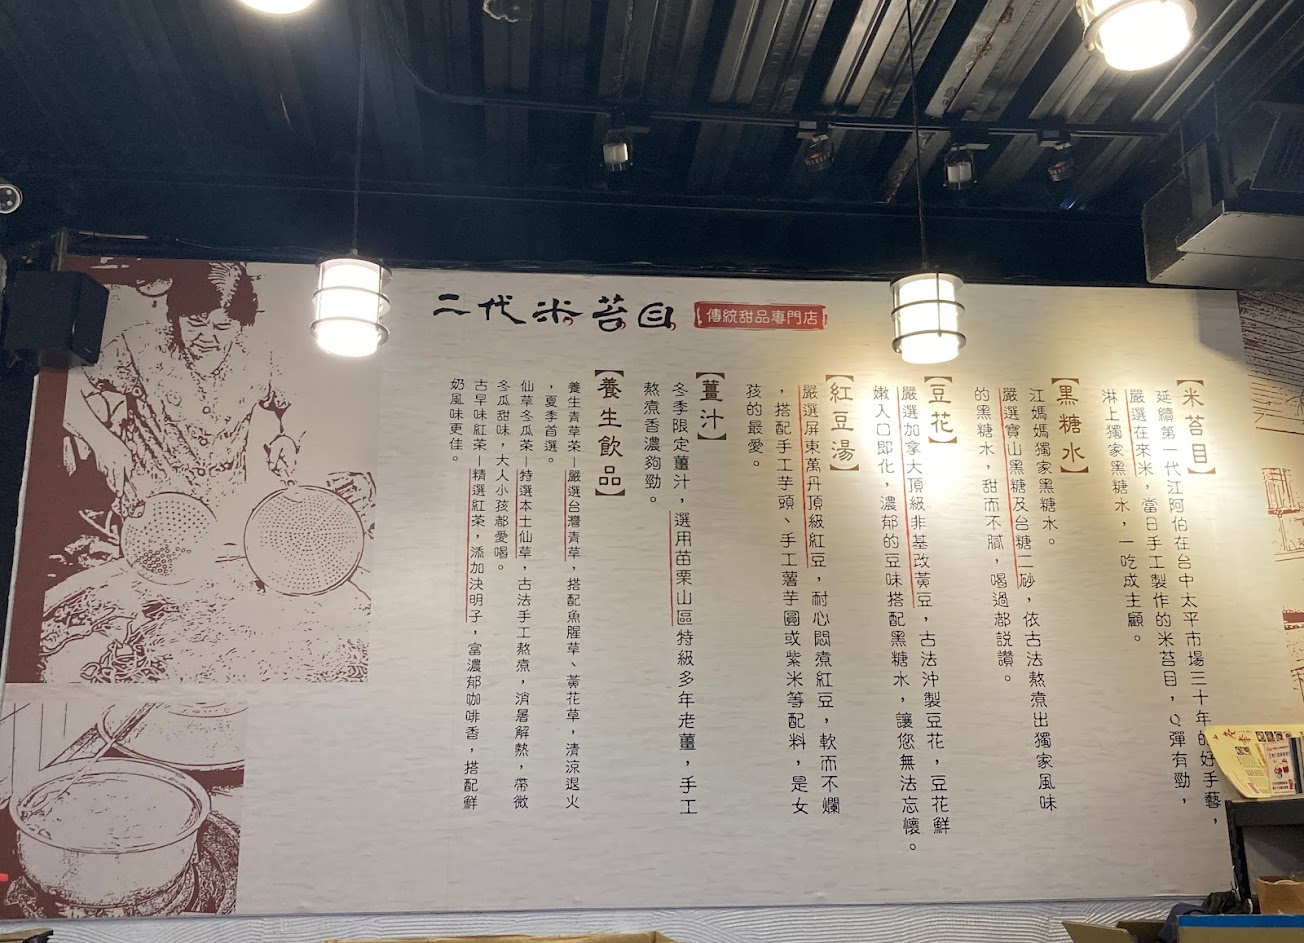 二代米苔目
傳統甜品專門店
【米苔目】
延續第一代江阿伯在台中太平市場三十年的好手藝，
嚴選在來米，當日手工製作的米苔目，Q彈有勁，
淋上獨家黑糖水，一吃成主顧。
【黑糖水】
江媽媽獨家黑糖水。
嚴選寶山黑糖及台糖二砂，依古法熬煮出獨家風味
的黑糖水，甜而不膩，喝過都說讚。
【豆花】
嚴選加拿大頂級非基改黃豆，古法沖製豆花，豆花鮮
嫩入口即化，濃郁的豆味搭配黑糖水，讓您無法忘懷。
【紅豆湯】
嚴選屏東萬丹頂級紅豆，耐心悶煮紅豆，軟而不爛
，搭配手工芋頭、手工薯芋圓或紫米等配料，是女
孩的最愛。
【薑汁】
冬季限定薑汁，選用苗栗山區特級多年老薑，手工
熬煮香濃夠勁。
【養生飲品】
養生青草茶—嚴選台灣青草，搭配魚腥草、黃花草，清涼退火
，夏季首選。
仙草冬瓜茶—特選本土仙草，古法手工熬煮，消暑解熱，帶微
冬瓜甜味，大人小孩都愛喝。
古早味紅茶—精選紅茶，添加決明子，富濃郁咖啡香，搭配鮮
奶風味更佳。